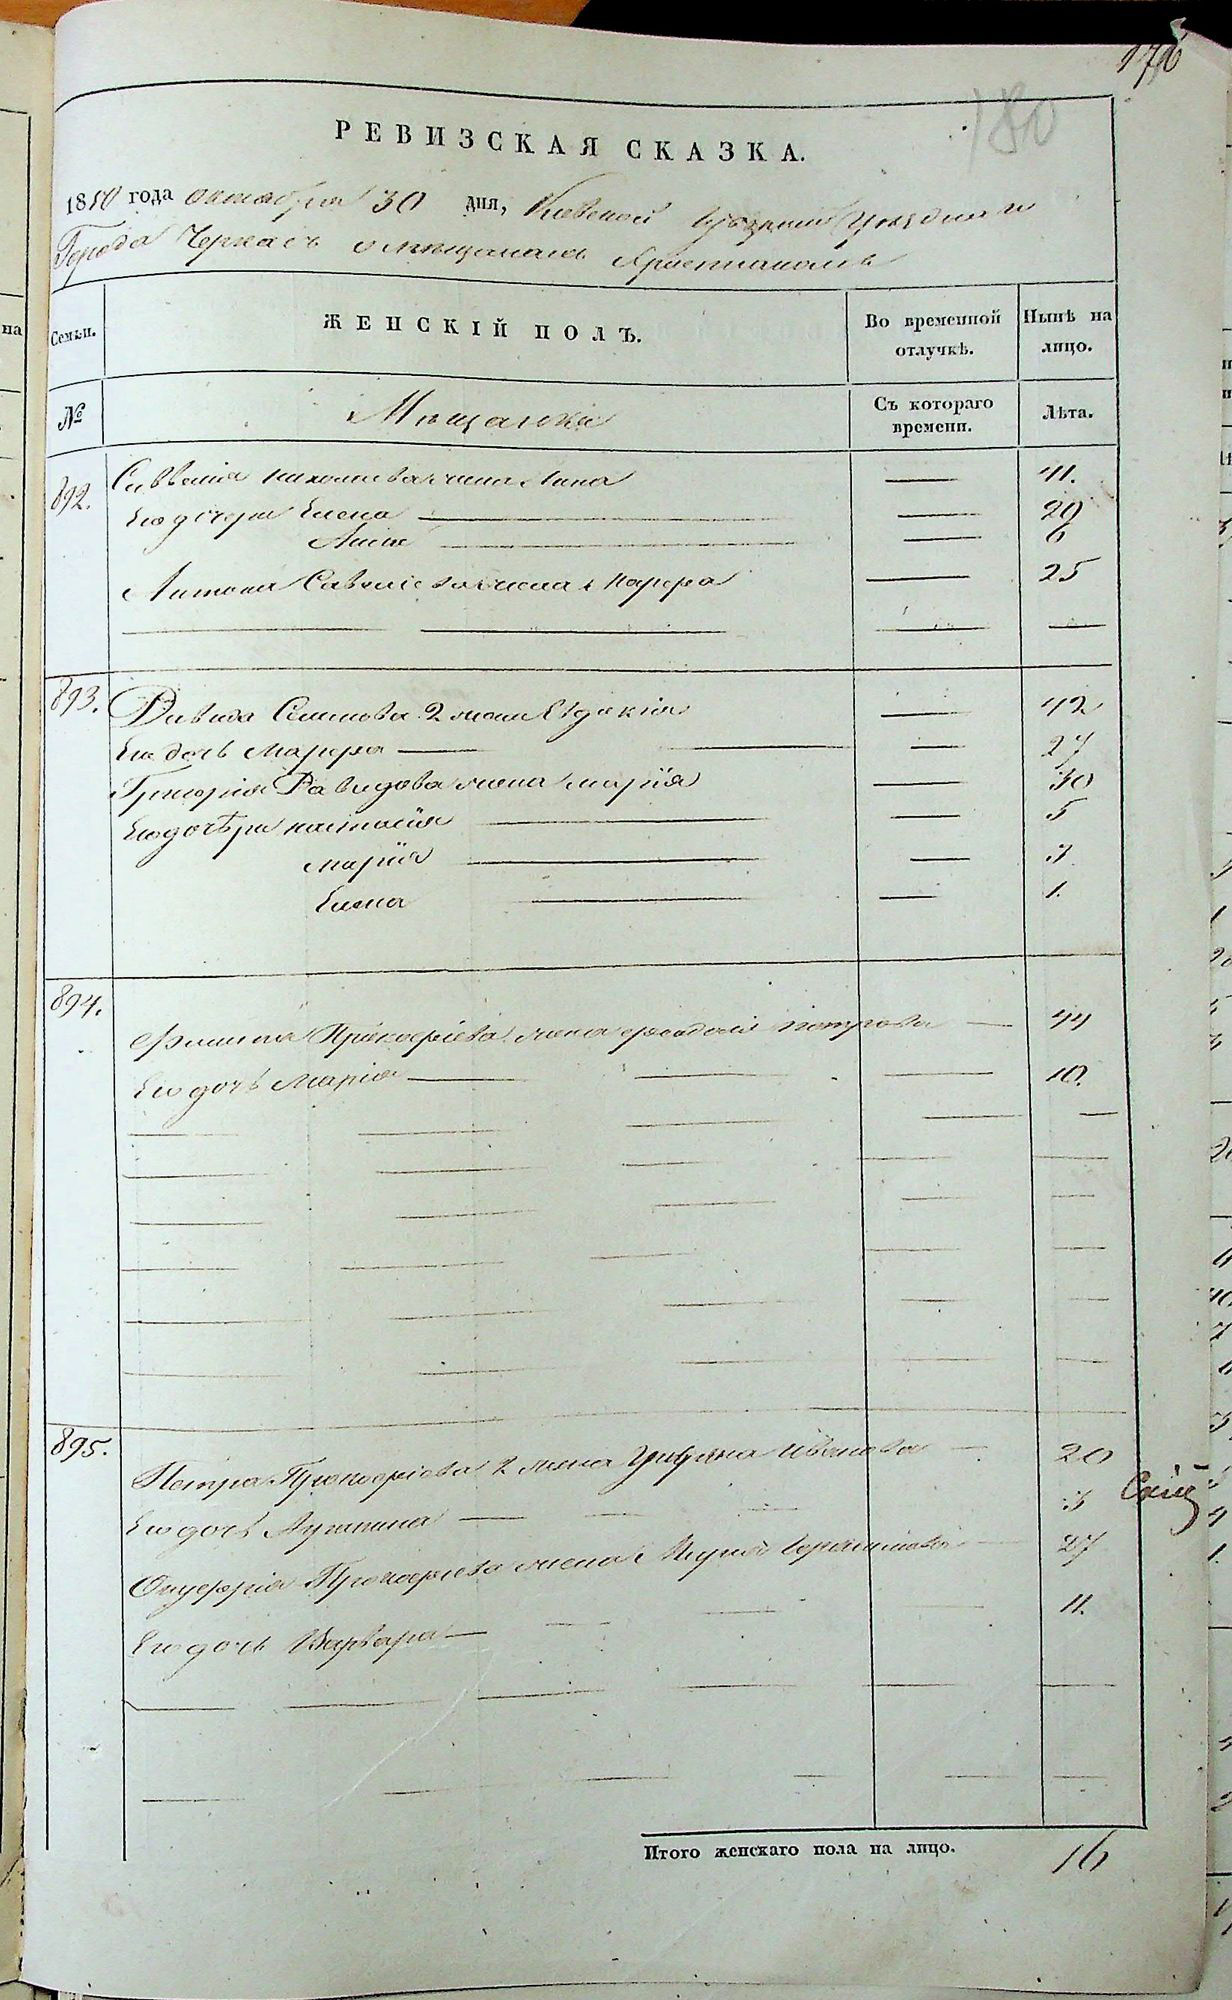 176
180
РЕВИЗСКАЯ СКАЗКА.
1850 года октября 30 дня, Киевской Губернии Уездного
Города Черкасъ о мѣщанахъ Христианахъ
Семьи.
ЖЕНСКІЙ ПОЛЪ.
Во временной отлучкѣ.
Нынѣ на лицо.
№
Мѣщанки
Съ котораго времени.
Лѣта.
892. жена Анна 41.
Его дочери Елена 20
Анна 6
Антона Савелиева жена Марфа 25
893. Давида Семенова 2 жена Евдокия 42
Его дочь Марфа 27
Григория Давидова жена Мария 30
Его дочѣри настасия 5
Мария 3
Елена 1.
894. Филипа Прокофіева жена петрова 44
Его дочь Мария 10.
895. Петра Прокофиева 2 жена Иванова 20
Его дочь 3
Онуфрия Прокофиева жена 27
Его дочь Варвара 11.
Итого женскаго пола на лицо. 16